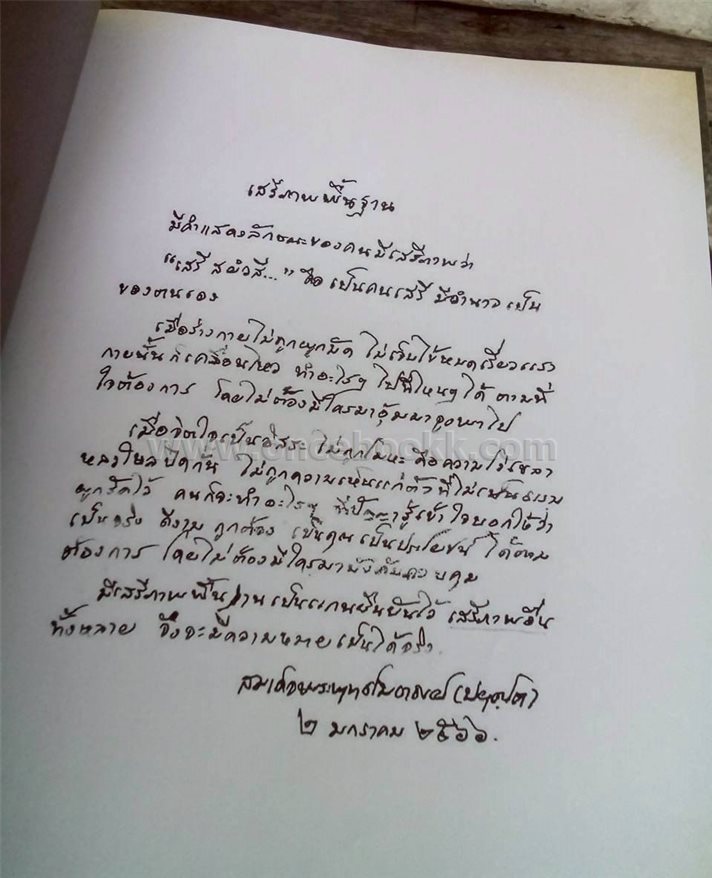 เสรีภาพพื้นฐาน
มีคำแสดงลักษณะของคนมีเสรีภาพว่า
"เสรี สยํวสี..." คือ เป็นคนเสรี มีอำนาจ เป็น
ของตนเอง
เมื่อร่างกายไม่ถูกผูกมัด ไม่เจ็บไข้หมดเรี่ยวแรง
กายนั้น ก็เคลื่อนไหว ทำอะไรๆ ไปที่ไหนๆ ได้ ตามที่
ใจต้องการ โดยไม่ต้องมีใครมาอุ้มมาจูงพาไป
เมื่อจิตใจเป็นอิสระ ไม่ถูกโมหะ คือความโง่เขลา
หลงใหลปิดกั้น ไม่ถูกความเห็นแก่ตัวที่ไม่เป็นธรรม
ผูกรัดไว้ คนก็จะทำอะไรๆ ที่ปัญญารู้เข้าใจบอกให้ว่า
เป็นจริง ดีงาม ถูกต้อง เป็นคุณ เป็นประโยชน์ ได้ตาม
ต้องการ โดยไม่ต้องมีใครมาบังคับควบคุม
มีเสรีภาพพื้นฐานเป็นแกนยืนยันไว้ เสรีภาพอื่น
ทั้งหลาย จึงจะมีความหมายเป็นได้จริง
สมเด็จพระพุทธโฆษาจารย์ (ป.อ. ปยุตฺโต)
๒ มกราคม ๒๕๖๖.
www.onceebookk.com